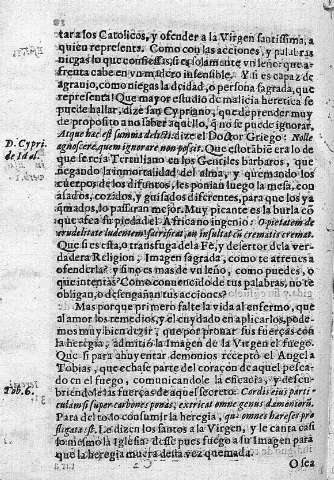 tar a los Catolicos, y ofender a la Virgen santissima, a
quien representa. Como con las acciones, y palabras
niegas lo que confiessas, si es solamente vn leño, que a-
frenta cabe en vn madero insensible. Y si es capaz de
agravio, como niegas la deidad, o persona sagrada, que
representa? Que mayor estudio de malicia heretica se
puede hallar, dize san Cypriano, que deprender muy
D. Cypri. de Idol.
de proposito a no saber aquello, q̃ no se puede ignorar,
Atque hæc est summa delicti, dize el Doctor Griego: Nolle
agnoscere, quem ignorare non possit. Que es lo
que se reia Tertuliano en los Gentiles barbaros, que
negando la inmortalidad del alma, y quemando los
cuerpos de los difuntos, les ponian luego la mesa, con
asados, cozidos, y guisados diferentes, para que los ya
quemados, lo passaran mejor. Muy picante es la burla cõ
que afea su piedad el Africano ingenio: O pietatem de
crudelitate ludentem! sacrificat, an insultat cũ crematis cremat.
Que si es esta, o transfuga de la Fè, y desertor de la ver-
dadera Religion, Imagen sagrada, como te atreues a
ofenderla? y sino es mas de vn leño, como puedes, o
que intentas? Como conuencido de tus palabras, no te
obligan, o desengañan tus acciones?
Mas porque primero falte la vida al enfermo, que
al amor los remedios, y el cuydado en aplicarlos, pode-
mos muy bien dezir, que por prouar sus fuerças con
la heregia, admitiò la Imagen de la Virgen el fuego.
Que si para ahuyentar demonios receptò el Angel a
Tobias, que echase parte del coraçon de aquel pesca-
do en el fuego, comunicandole la eficacia, y descu-
Tob. 6.
briendole las fuerças de aquel secreto: Cordis eius parti-
culam si super carbones ponas, extricat omne genus dæmoniorũ.
Para del todo consumir la heregia, quia omnes hæreses pro-
fligata est. Le dizen los santos a la Virgen, y le canta casi
lo mesmo la Iglesia: desse pues fuego a su Imagen para
que la heregia muera desta vez quemada.
O sea